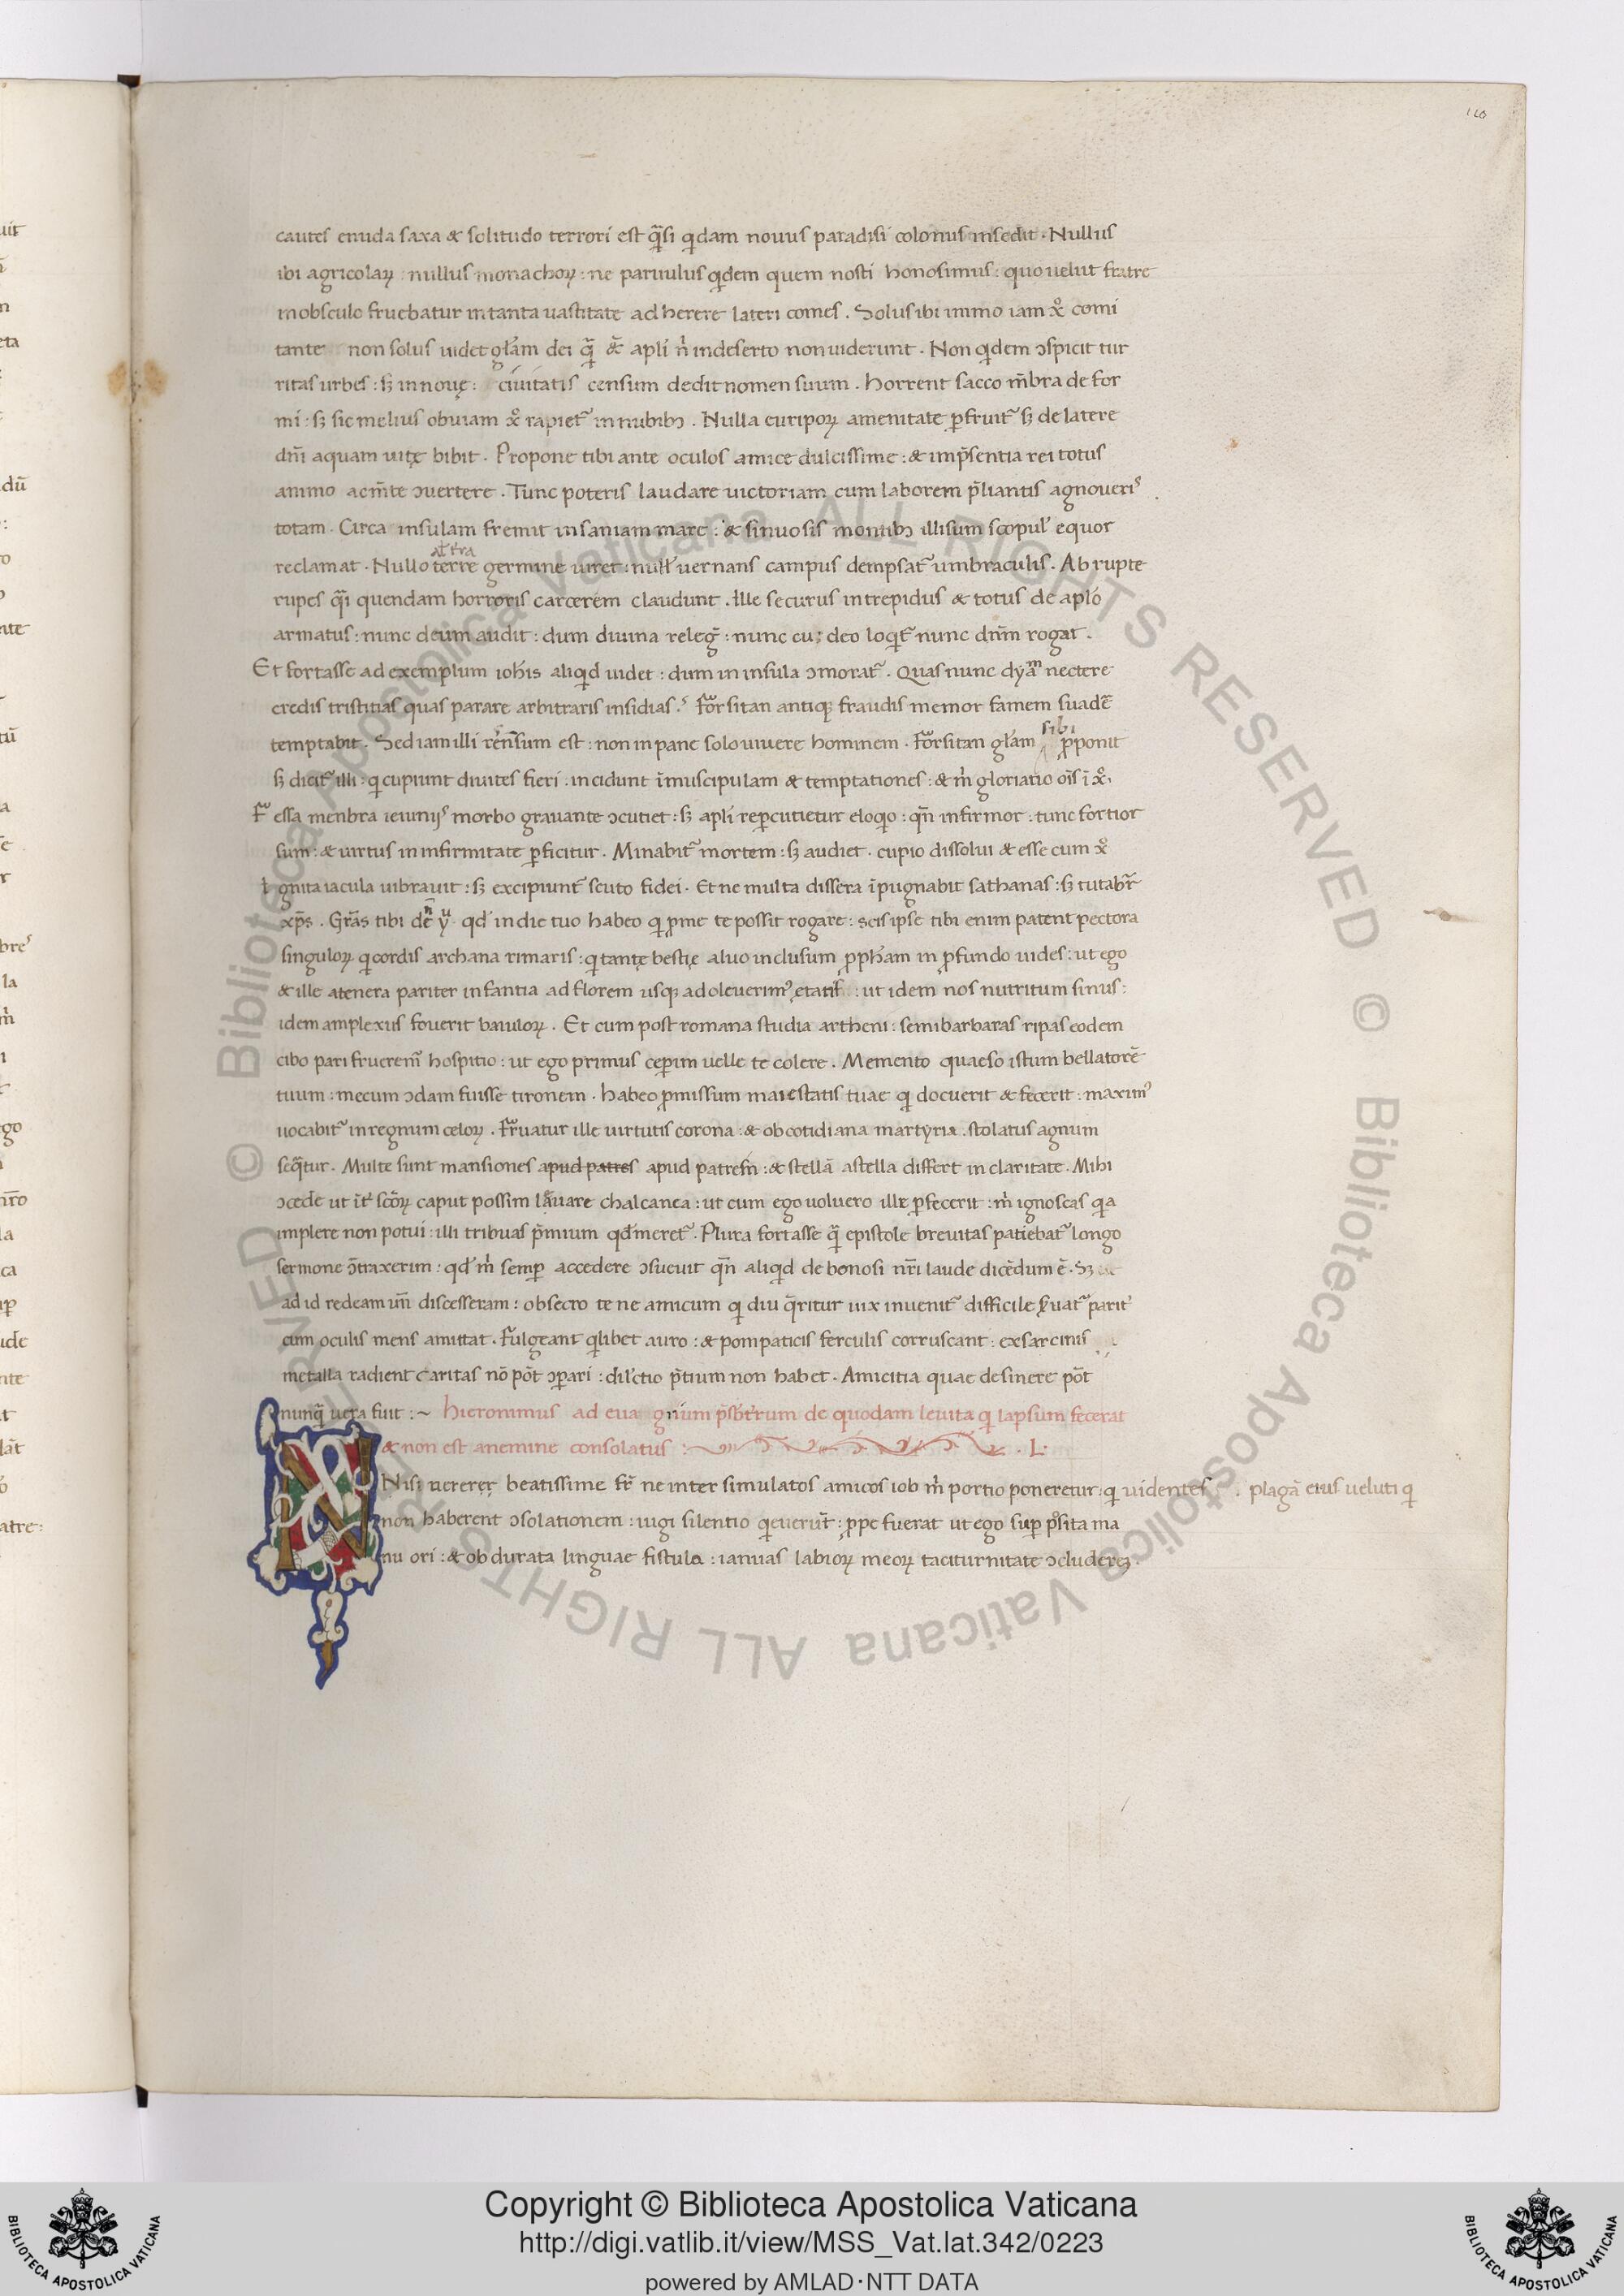 110
cautes enuda saxa & solitudo terrori est q̄si qdam nouus paradisi colonus insedit. Nullus
ibi agricolaꝝ: nullus monachoꝝ: ne paruulus qdem quem nosti honosimus: quo uelut fratre
inobsculo fruebatur in tanta uastitate ad herere lateri comes. Solus ibi immo iam xp̊ comi
tante non solus uidet głam dei q̄ & apłi ň in deserto non uiderunt. Non qdem ɔspicit tur
ritas urbes: sꝫ in nouę: ciuitatis censum dedit nomen suum. horrent sacco m̄bra de for
mi: sꝫ sic melius obuiam xp̊ rapiet̃ in nubibꝫ. Nulla euripoꝝ amenitate ꝑfruit̃ sꝫ de latere
dm̄i aquam uitę bibit. Propone tibi ante oculos amice dulcissime: & imp̄sentia rei totus
animo ac m̄te ɔuertere. Tunc poteris laudare uictoriam cum laborem p̄liantis agnoueris.
totam. Circa insulam fremit insaniam mare: & sinuosis montibꝫ illisum scopul' equor
reclamat. Nullo terre germine uiret: null' uernans campus dempsat̃ umbraculis. Abrupte
rupes q̄i quendam horroris carcerem claudunt. Ille securus intrepidus & totus de apło
armatus: nunc deum audit: dum diuina releg̃: nunc cu; deo loqt̃ nunc dnm̄ rogat.
Et fortasse ad exemplum ioh̄is aliqd uidet: dum in insula ɔmorat̃. Quas nunc dyãm nectere
credis tristitias quas parare arbitraris insidias? Forsitan antiqꝫ fraudis memor famem suadẽ
sibi
temptabit. Sed iam illi rēnsum est: non in pane solo uiuere hominem. Forsitan głam ꝓponit
sꝫ dicit̃ illi: q cupiunt diuites fieri. incidunt ī muscipulam & temptationes: & m̓ gloriatio oı̄s ī xp̊.
Fessa menbra ieiunijs morbo grauante ɔcutiet: sꝫ apłi reꝑcutietur eloqio: qn̄ infirmor: tunc fortior
sum: & uirtus in infirmitate ꝑficitur. Minabit̃ mortem: sꝫ audiet. cupio dissolui & esse cum xp̊
Ignita iacula uibrauit: sꝫ excipiunt̃ scuto fidei. Et ne multa dissera īpugnabit sathanas: sꝫ tutabr̄
xp̄s. Gr̄as tibi dn̄e yu qd' in die tuo habeo q ꝓme te possit rogare: scis ipse tibi enim patent pectora
singuloꝝ q cordis archana rimaris: q tantę bestię aluo inclusum ꝓph̄am in ꝓfundo uides: ut ego
& ille atenera pariter infantia ad florem usqꝫ adoleuerim' etatis: ut idem nos nutritum sinus:
idem amplexus fouerit baiuloꝝ. Et cum post romana studia artheni: semibarbaras ripas eodem
cibo pari fruerem̃ hospitio: ut ego primus ceꝑim uelle te colere. Memento quaeso istum bellatorẽ
tuum: mecum ɔdam fuisse tironem. habeo ꝓmissum maiestatis tuae q docuerit & fecerit: maxim'
uocabit̃ in regnum celoꝝ. Fruatur ille uirtutis corona: & ob cotidiana martyria. stolatus agnum
seq̄tur. Multe sunt mansiones apud patres apud patrem: & stellā astella differt in claritate. Mihi
ɔcede ut īt' sc̄oꝝ caput possim lauare chalcanea: ut cum ego uoluero ille ꝑfecerit: m̓ ignoscas qa
implere non potui: illi tribuas p̄mium qd' meret̃. Plura fortasse q̄ epistole breuitas patiebat̃ longo
sermone ɔ̄traxerim: qd' m̓ semꝑ accedere ɔsueuit qn̄ aliqd de bonosi nr̄i laude dicēdum ē. Sꝫ
ad id redeam un̄ discesseram: obsecro te ne amicum q diu q̄ritur uix inuenit̃ difficile ẜuat̃ parit'
cum oculis mens amittat. Fulgeant qlibet auro: & pompaticis ferculis corruscant: exsarcinis
metalla radient caritas nō pōt ɔꝑari: dil'ctio p̄tium non habet. Amicitia quae desinere pōt
nunq̄ uera fuit: ~ hieronimus ad euagnium p̄sbi̓t̓rum de quodam leuita q lapsum fecerat
& non est anemine consolatus: . L.
Nisi uererer beatissime fr̄ ne inter simulatos amicos iob m̓ portio poneretur: q uidentes plagā eius ueluti q
non haberent ɔsolationem: iugi silentio qeuerūt: ꝓpe fuerat ut ego suꝑ p̊sita ma
nu ori: & obdurata linguae fistula: ianuas labioꝝ meoꝝ taciturnitate ɔcludereꝫ.
Copyright © Biblioteca Apostolica Vaticana
http://digi.vatlib.it/view/MSS_Vat.lat.342/0223
powered by AMLAD·NTT DATA
BIBLIOTECA APOSTOLICA VATICANA
BIBLIOTECA APOSTOLICA VATICANA
© Biblioteca Apostolica Vaticana ALL RIGHTS RESERVED © Biblioteca Apostolica Vaticana ALL RIGHTS RESERVED